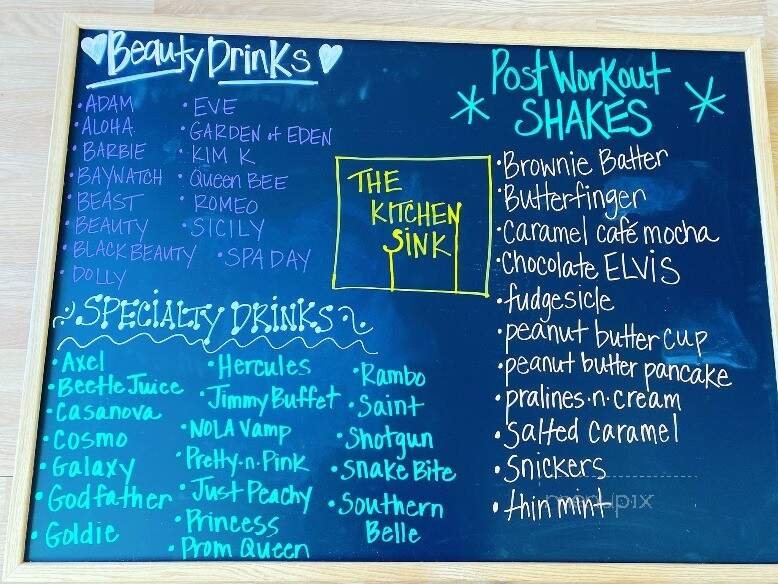 Beauty Drinks
• ADAM
• ALOHA
• BARBIE
• BAYWATCH
• BEAST
• BEAUTY
• BLACK BEAUTY
• DOLLY
• EVE
• GARDEN of EDEN
• KIM K
• Queen BEE
• ROMEO
• SICILY
• SPA DAY
THE
KITCHEN
SINK
SPECIALTY DRINKS
• Axel
• Beetle Juice
• Casanova
• Cosmo
• Galaxy
• Godfather
• Goldie
• Hercules
• Jimmy Buffet
• NOLA Vamp
• Pretty•n•Pink
• Just Peachy
• Princess
• Prom Queen
• Rambo
• Saint
• Shotgun
• Snake Bite
• Southern
Belle
Post Workout
SHAKES
• Brownie Batter
• Butterfinger
• Caramel café mocha
• Chocolate ELVIS
• fudgesicle
• peanut butter cup
• peanut butter pancake
• pralines•n•cream
• Salted Caramel
• Snickers
• thin mint
menupix